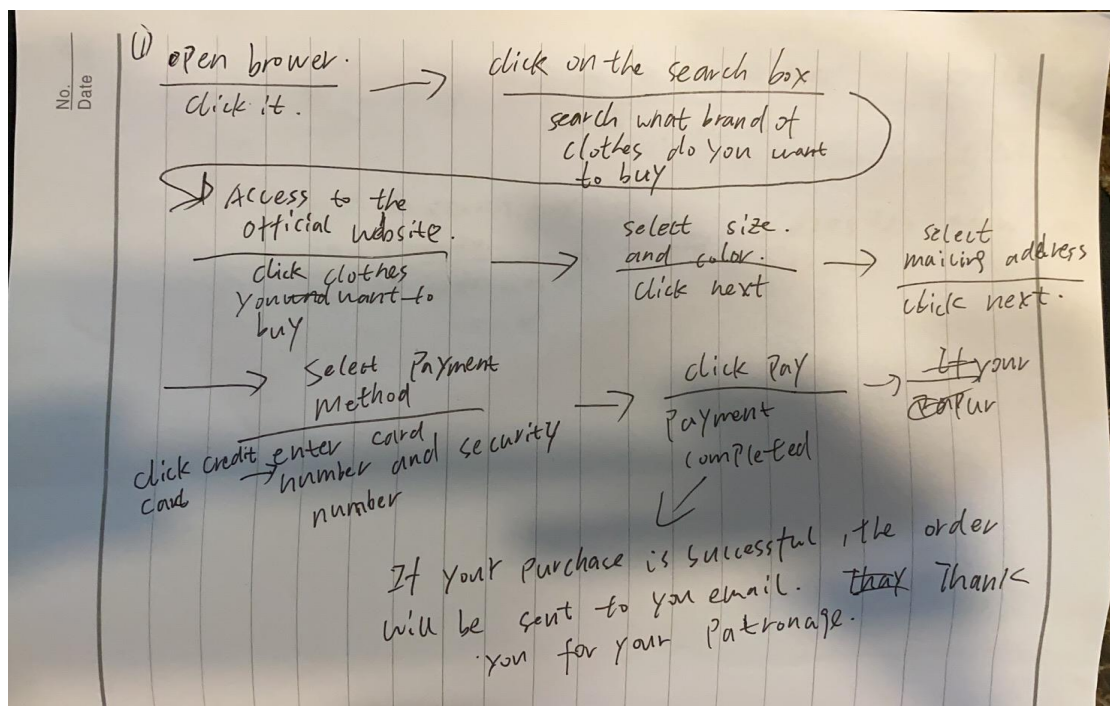 No.
Date
① open brower.
click it.
click on the search box
search what brand of
clothes do you want
to buy
Access to the
official website.
click clothes
you want to
buy
select size.
and color.
click next
select
mailing address
click next.
Select Payment
Method
click credit
card
enter card
number and security
number
click Pay
Payment
completed
If your
Pur
If your purchase is successful, the order
will be sent to you email. thay Thank
you for your Patronage.